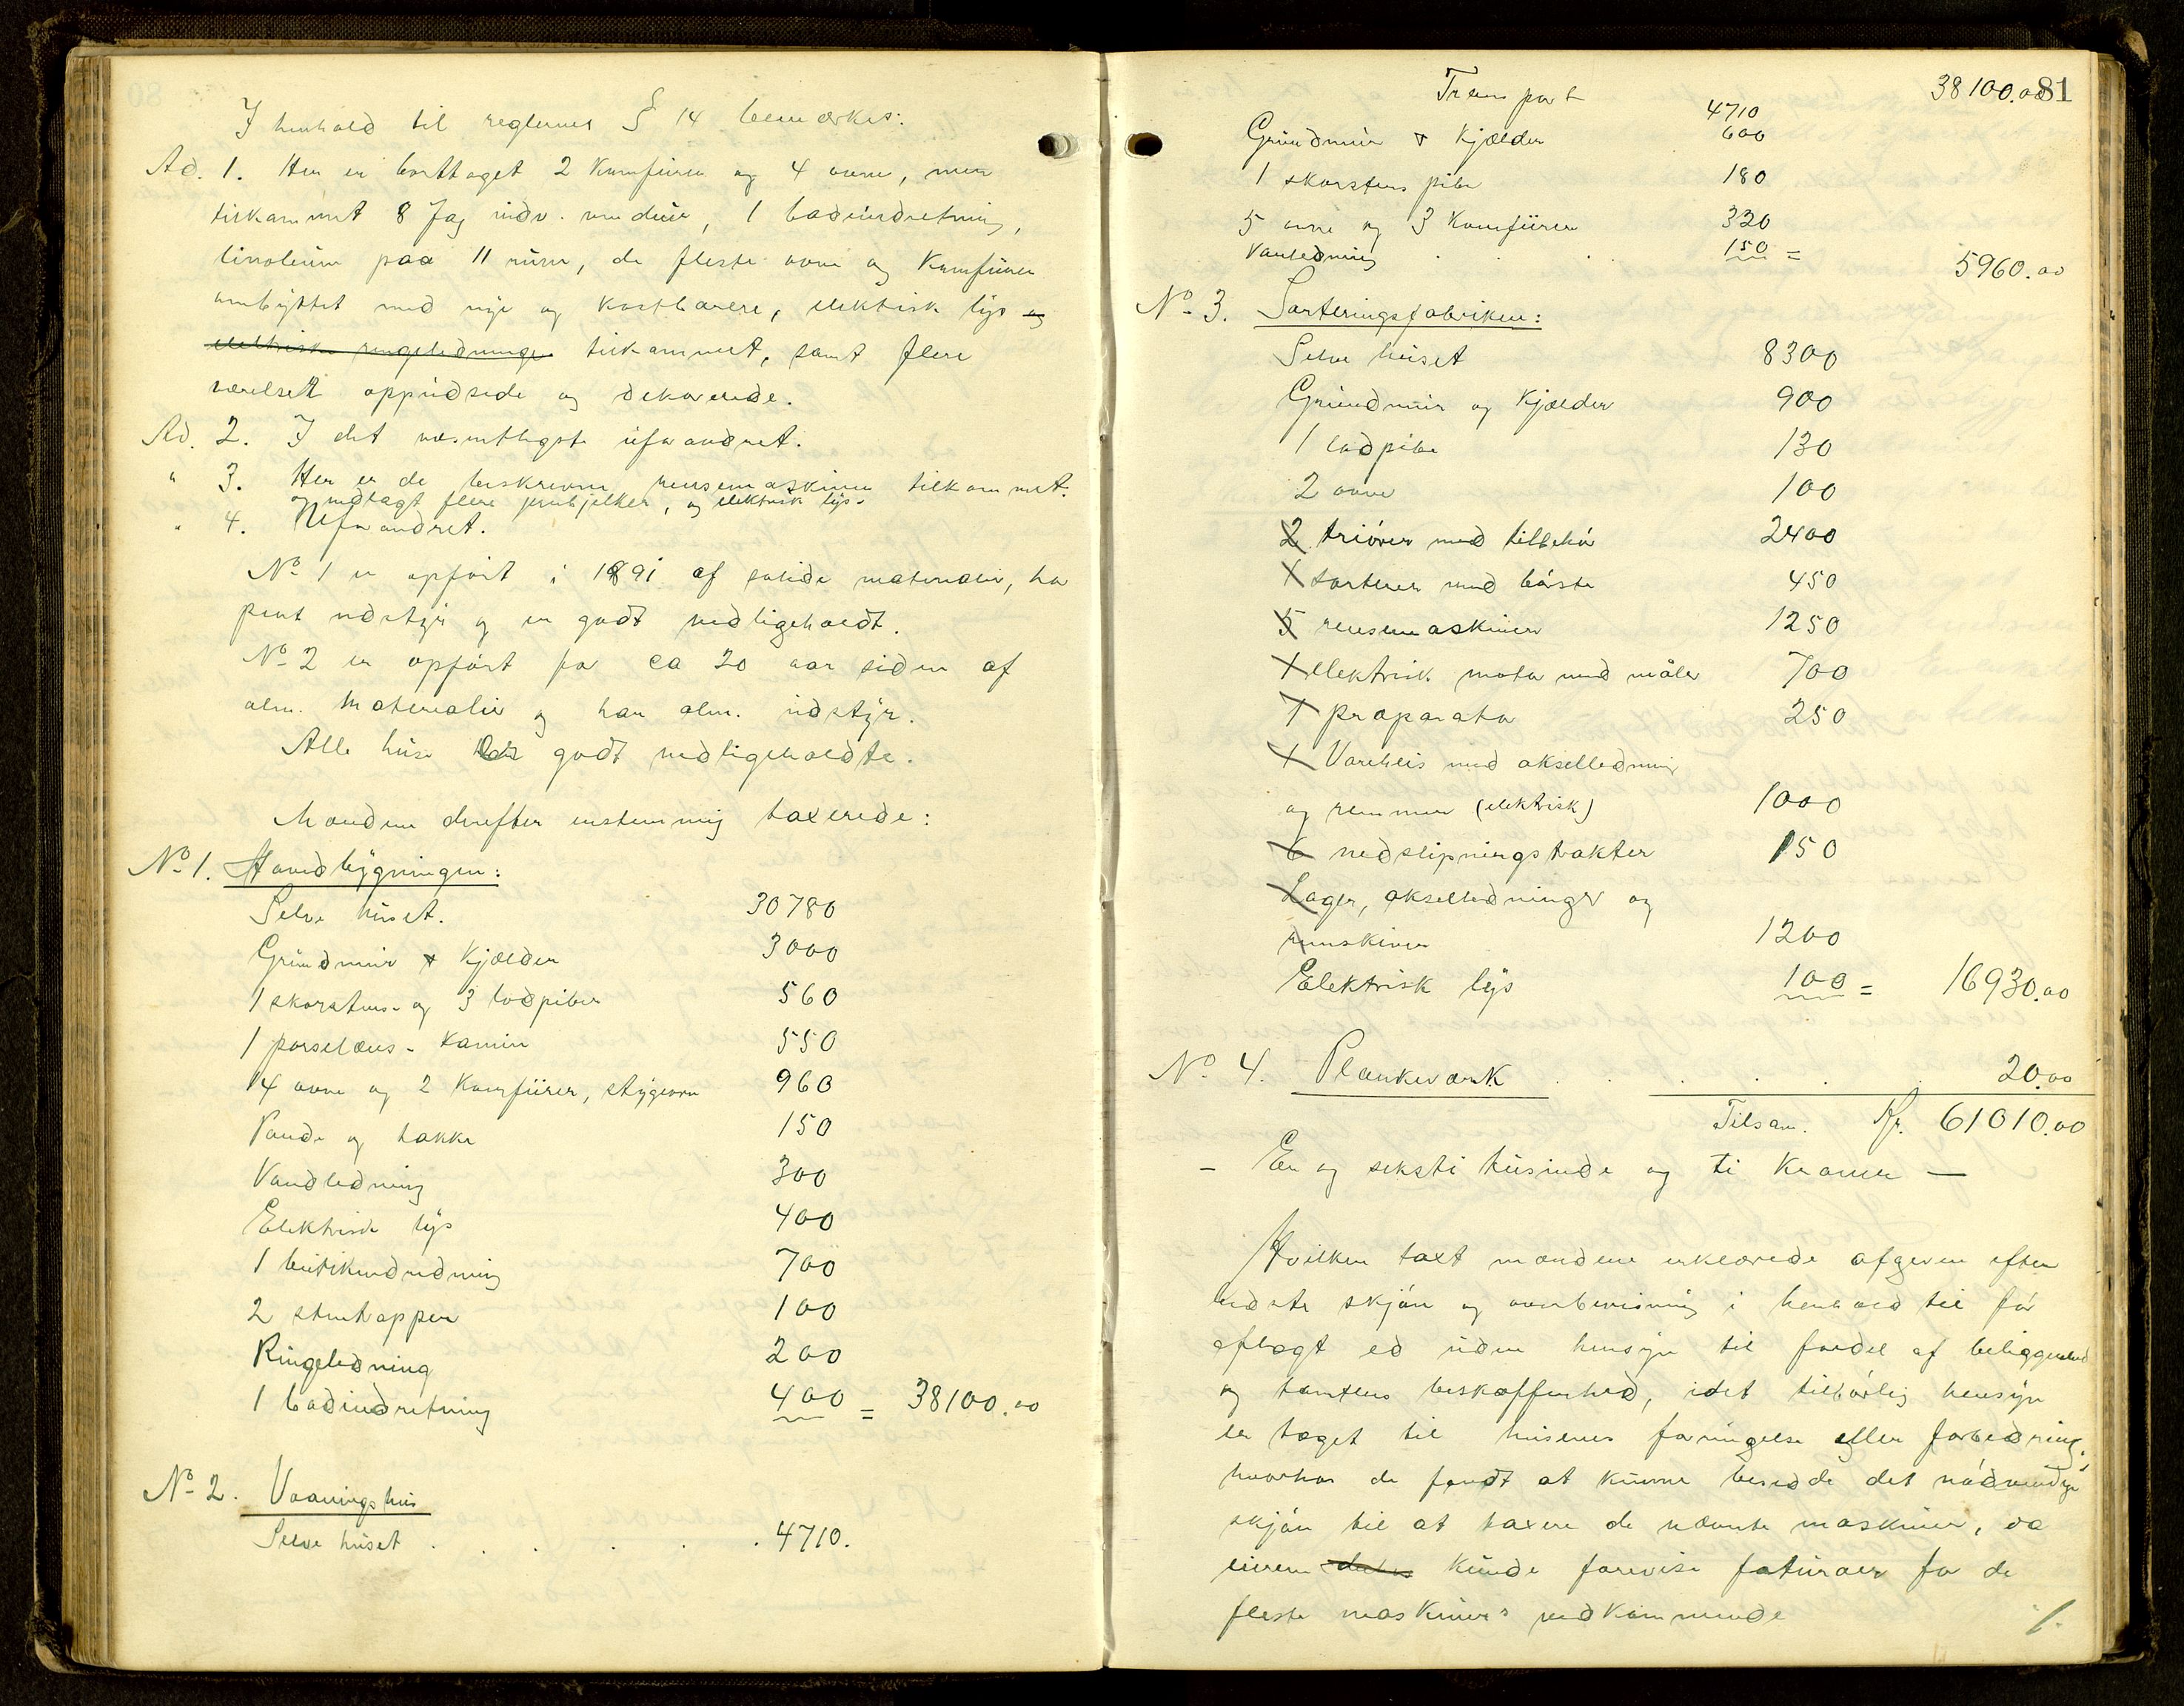 I henhold til reglernes § 14 bemærkes:
Ad. 1. Her er borttaget 2 Komfürer og 4 ovne, men
tilkommet 8 Fag indv. vinduer, 1 badeindretning,
linoleüm paa 11 rüm, de fleste ovne og Komfürer
ombyttet med nye og kostbarere, elektrisk lys og
elektriske ringeledninger tilkommet, samt flere
værelser oppüdsede og dekorerede.
Ad. 2. I det væsentligste üforandret.
" 3. Her er de beskrevne rensemaskiner tilkommet.
og indlagt flere jernbjelker, og elektrisk lys.
" 4. Uforandret.
No 1 er opført i 1891 af solide materialer, har
pent üdstyr og er godt vedligeholdt.
No 2 er opført for ca 20 aar siden af
alm. materialer og har alm. üdstyr.
Alle hüse er godt vedligeholdte.
Mændene derefter enstemmig taxerede:
No 1. Hovedbygningen:
Selve hüset. 30780
Gründmür & Kjælder 3000
1 skorstens- og 3 lodpiber 560
1 porselæns-kamin 550
14 ovne og 2 Komfürer, strygeovn 960
Pande og takke 150
Vandledning 300
Elektrisk lys 400
1 bütikindredning 700
2 strutapper 100
Ringeledning 200
1 badindretning 400 = 38100.00
No 2. Vaaningshüs
Selve hüset . . . . . 4710.
81
Transport 38100.00
4710
Gründmür & Kjælder 600
1 skorstens pibe 180
5 ovne og 3 Komfürer 320
Vanledning . . . 150 = 5960.00
No 3. Sorteringsfabriken:
Selve hüset 8300
Gründmür og Kjælder 900
1 lodpibe 130
2 ovne 100
2 triører med tilbehør 2400
1 sorterer med børste 450
5 rensemaskiner 1250
1 elektrisk motor med måler 700
1 præparator 250
1 Vareheis med akselledning
og remmer (elektrisk) 1000
6 nedslipningstrakter 150
Lager, akselledninger og
remskiver 1200
Elektrisk lys 100 = 16930.00
No 4. Plankeværk . . . . . 20.00
Tilsam. Kr. 61010.00
- En og seksti tüsinde og ti Kroner -
Hvilken taxt mændene erklærede afgiven efter
bedste skjøn og overbevisning i henhold til før
aflagt ed üden hensyn til fordel af beliggenhed
og tomtens beskaffenhed, idet tilbørlig hensyn
er taget til hüsenes forringelse eller forbedring,
hvorhos de fandt at künne besidde det nødvendige
skjøn til at taxere de nævnte maskiner, da
eieren künde forevise fatüraer for de
fleste maskiners vedkommende ./.